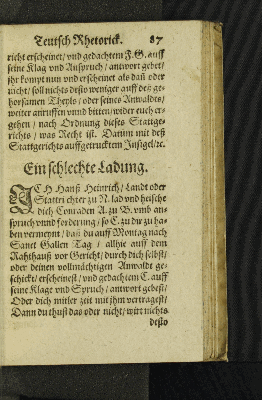 Teutsch Rhetorick. 87
richt erscheinet/ vnd gedachtem F. G. auff
seine Klag vnd Anspruch/ antwort gebet/
jhr kompt nun vnd erscheinet als daß oder
nicht/ soll nichts desto weniger auff deß ge-
horsamen Theyls/ oder seines Anwaldts/
weiter anruffen vnnd bitten/ wider euch er-
gehen/ nach Ordnung dieses Stattge-
richts/ was Recht ist. Datum mit deß
Stattgerichts auffgetrucktem Insigel/ ꝛc.
Ein schlechte Ladung.
ICH Hanß Heinrich/ Landt oder
Stattrichter zu N. lad vnd heische
dich Conraden A. zu B. vmb an-
spruch vnnd forderung/ so C. zu du zu ha-
ben vermeynt/ daß du auff Montag nach
Sanct Gallen Tag/ allhie auff dem
Rahthauß vor Gericht/ durch dich selbst/
oder deinen vollmächtigen Anwaldt ge-
schickt/ erscheinest/ vnd gedachtem C. auff
seine Klage vnd Spruch/ antwort gebest/
Oder dich mitler zeit mit jhm vertragest/
Dann du thust das oder nicht/ wirt nichts
desto